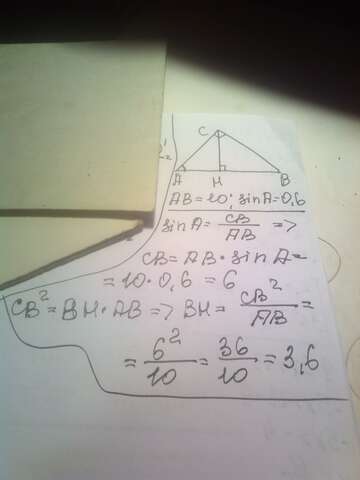 C
A H B
AB=10; sin A=0,6
sin A = CB/AB =>
CB = AB · sin A =
= 10 · 0,6 = 6
CB² = BH · AB => BH = CB²/AB =
= 6²/10 = 36/10 = 3,6